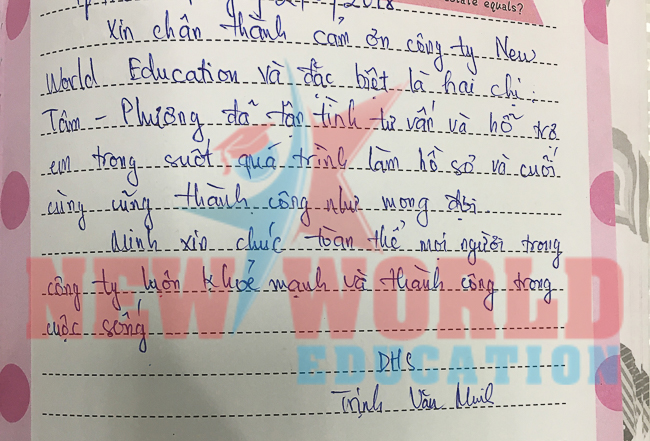 equals?
2018
Xin chân thành cảm ơn công ty New
World Education và đặc biệt là hai chị:
Tâm - Phương đã tận tình tư vấn và hỗ trợ
em trong suốt quá trình làm hồ sơ và cuối
cùng cũng thành công như mong đợi.
Mình xin chúc toàn thể mọi người trong
công ty luôn khoẻ mạnh và thành công trong
cuộc sống
NEW WORLD
EDUCATION
DHS
Trịnh Văn